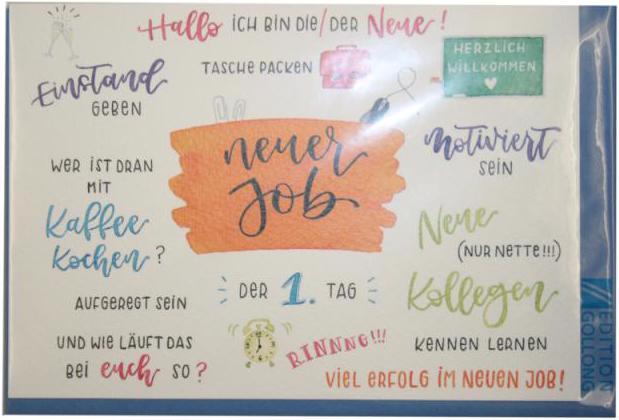 Hallo ICH BIN DIE/DER Neue!
Einstand
GEBEN
TASCHE PACKEN
HERZLICH
WILLKOMMEN
neuer
Job
motiviert
SEIN
WER IST DRAN
MIT
Kaffee
kochen?
Neue
(NUR NETTE!!!)
Kollegen
KENNEN LERNEN
AUFGEREGT SEIN
DER 1. TAG
UND WIE LÄUFT DAS
BEI euch SO?
RINNNG!!!
VIEL ERFOLG IM NEUEN JOB!
EDITION
GOLLONG